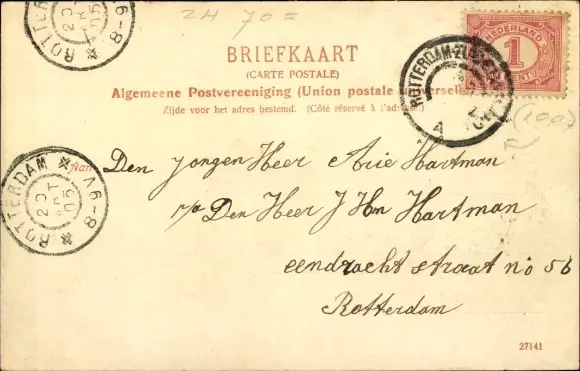 2H 70=
ROTTERDAM
8-9V
2 OKT 05
BRIEFKAART
(CARTE POSTALE)
Algemeene Postvereeniging (Union postale universelle)
Zijde voor het adres bestemd. (Côté réservé à l'adresse.)
NEDERLAND
1
CENT
ROTTERDAM-ZU
(100)
ROTTERDAM
8-9V
2 OKT 05
Aan Den Jongen Heer Arie Hartman
p/a Den Heer J Hn Hartman
eendracht straat no 56
Rotterdam
27141